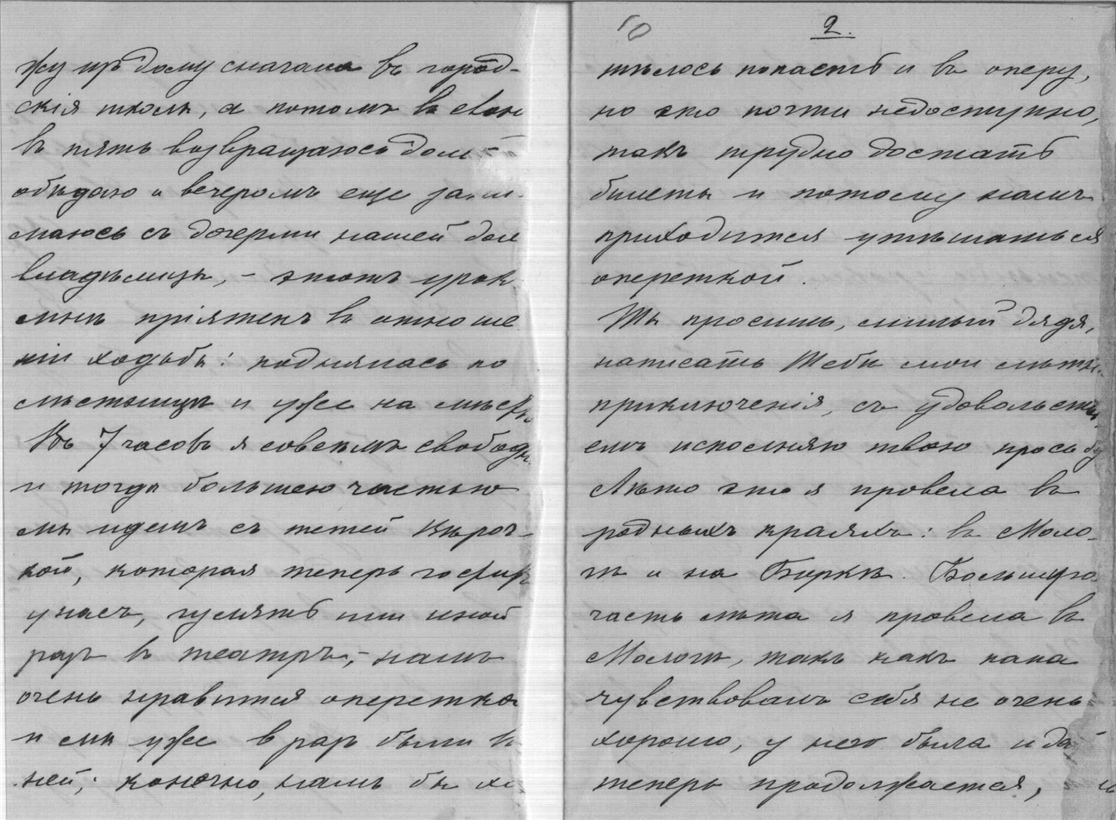 жу изъ дому сначала въ город-
скія школы, а потомъ въ свою
въ пять возвращаюсь домой
обѣдаю и вечеромъ еще зани-
маюсь съ дочерми нашей домо
владѣлицы, – этотъ урок
мнѣ пріятенъ въ отноше
ніи ходьбы: поднялась по
лѣстницѣ и уже на мѣстѣ
Въ 7 часовъ я совсѣмъ свободн
и тогда большею частью
мы идемъ съ тетей Вѣроч-
кой, которая теперь гоститъ
у насъ, гулять или иной
разъ въ театръ, – намъ
очень нравится оперетка
и мы уже 3 раза были в
ней; конечно, намъ бы хо
2.
тѣлось попасть и въ оперу,
но это почти недоступно,
такъ трудно достать
билеты и потому намъ
приходится утѣшаться
опереткой.
Ты просишь, милый дядя,
написать Тебѣ мои лѣтнія
приключенія, съ удовольстві
емъ исполняю твою просьбу
Лѣто это я провела въ
родныхъ краяхъ: въ Моло-
гѣ и на Боркѣ. Большую
часть лѣта я провела въ
Мологѣ, такъ какъ папа
чувствовалъ себя не очень
хорошо, у него была и да
теперь продолжается,